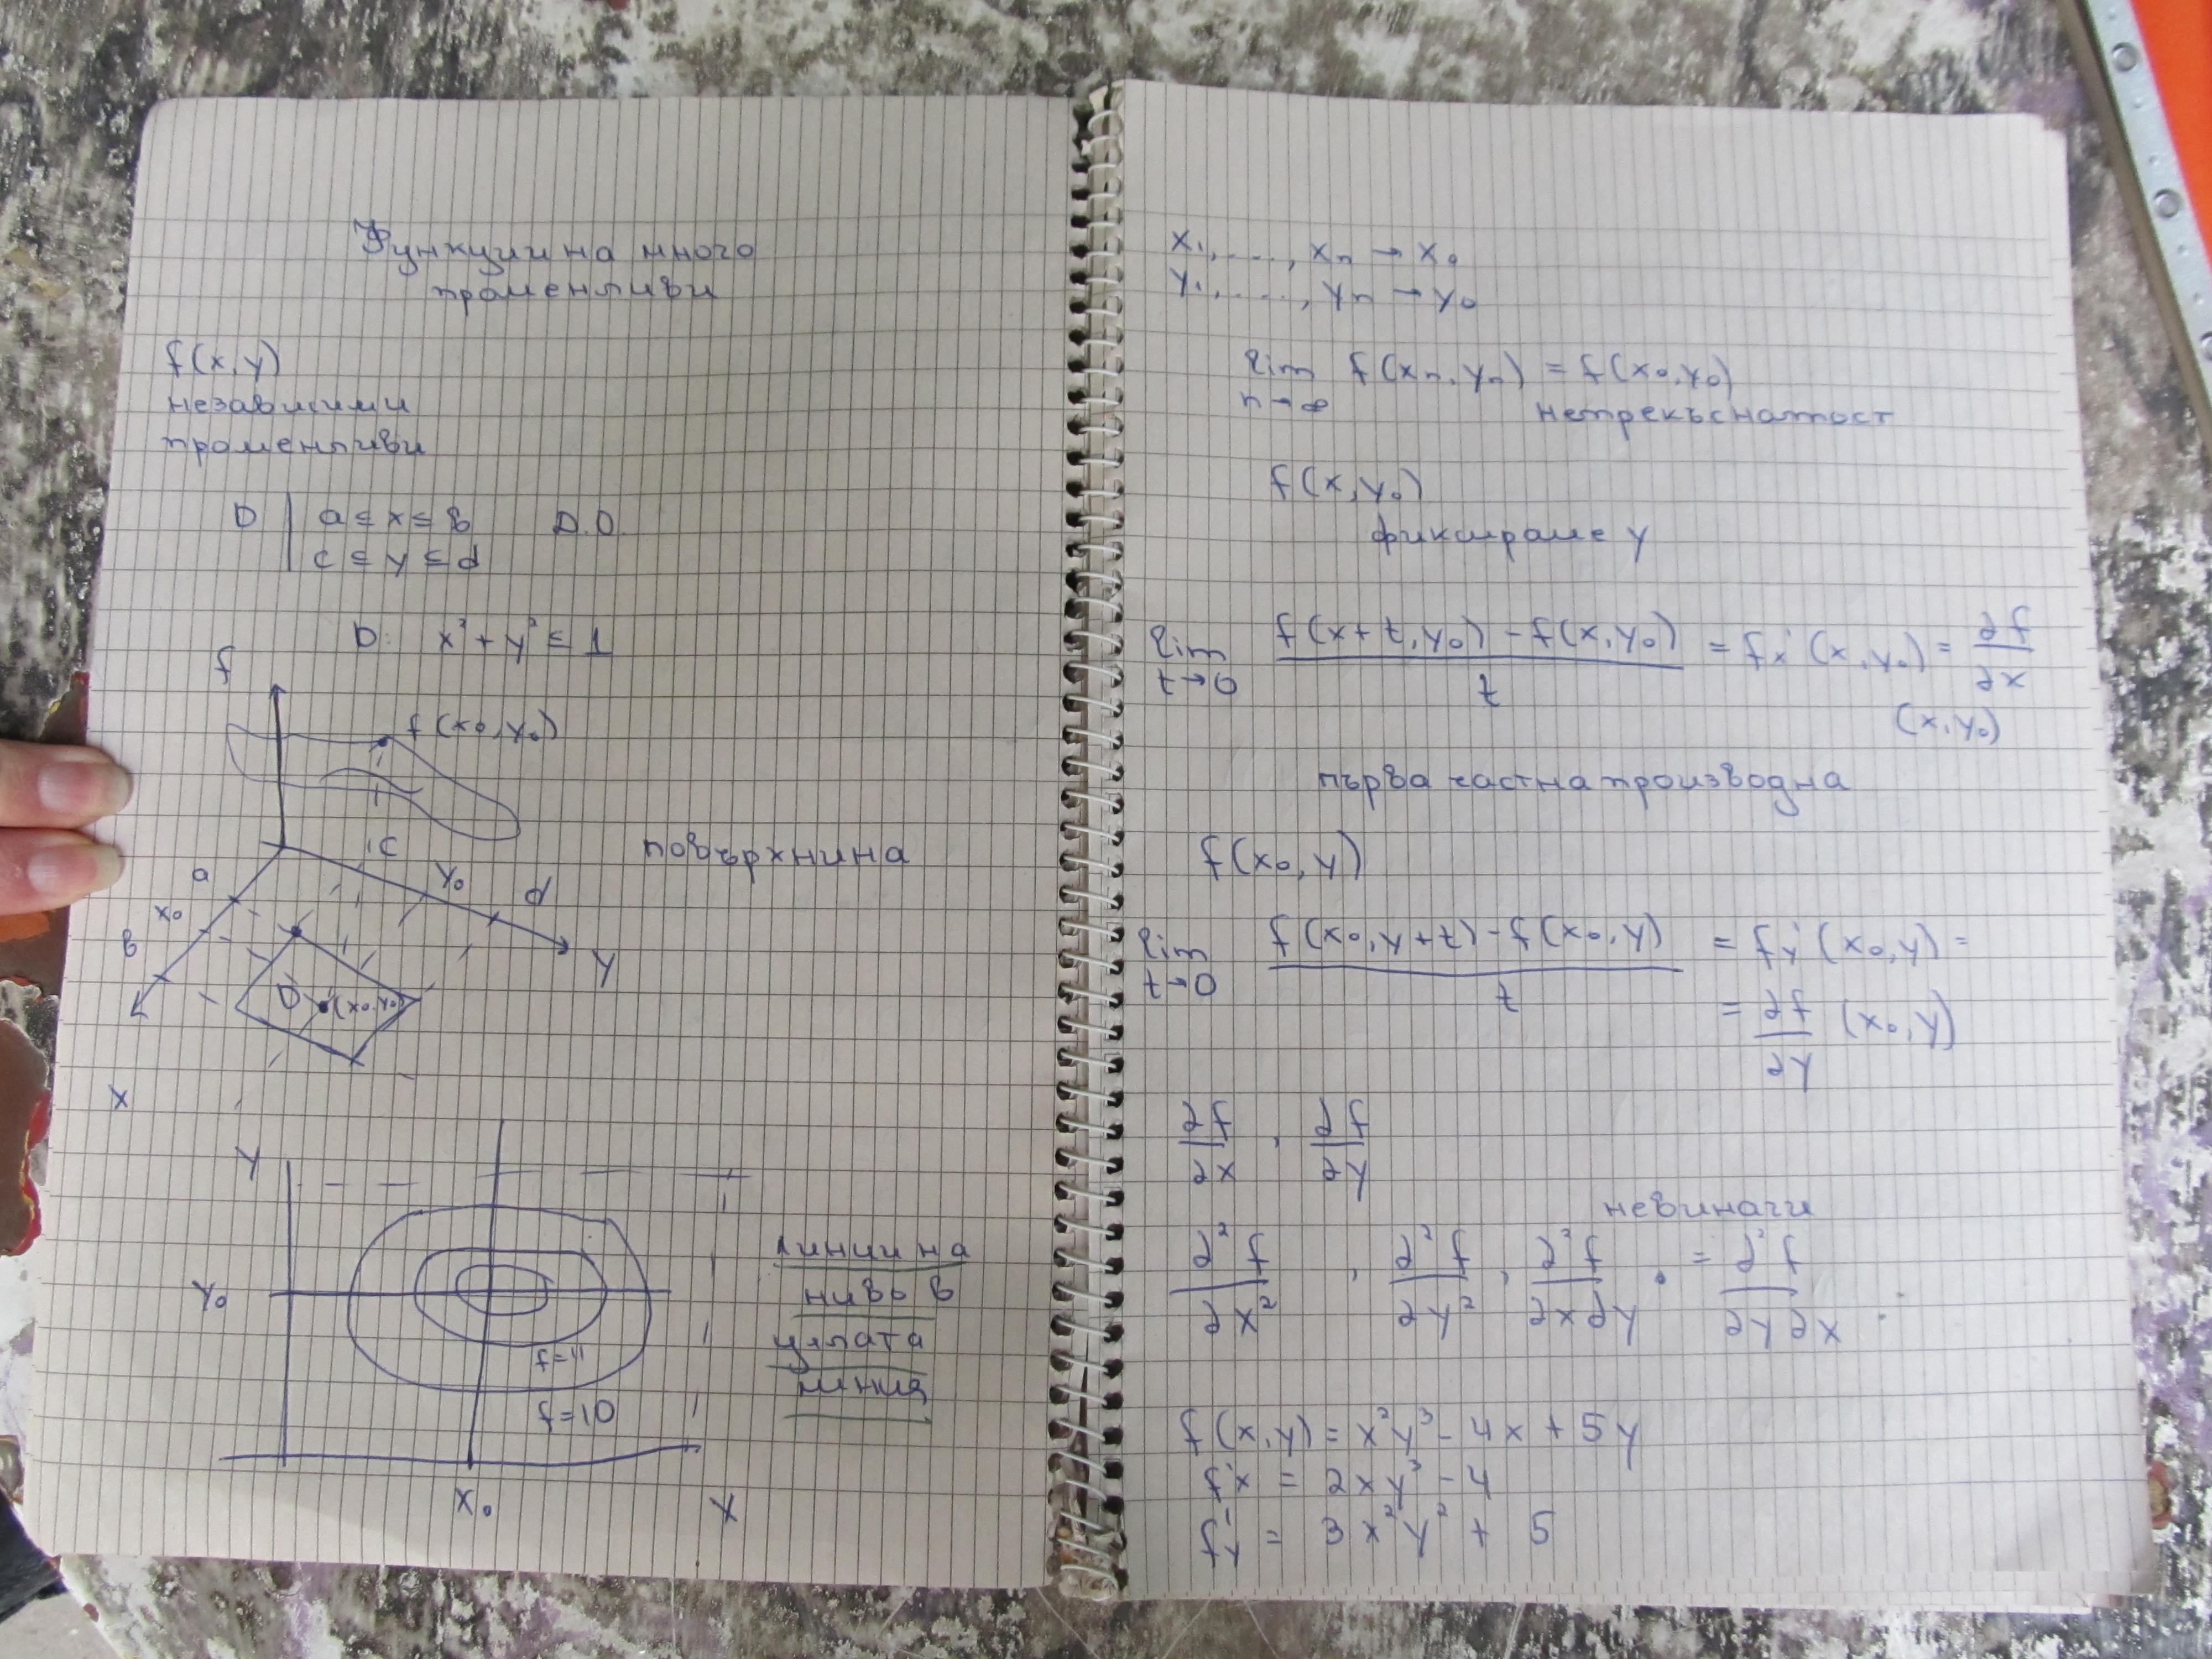 Функции на много
променливи
f(x,y)
независими
променливи
D | a ≤ x ≤ b   D.O.
c ≤ y ≤ d
D: x² + y² ≤ 1
f
f(x₀,y₀)
c
a
y₀
d
x₀
b
y
D (x₀,y₀)
x
повърхнина
y
y₀
f=11
f=10
x₀
x
линии на
ниво в
цялата
линия
x₁, ...., xₙ → x₀
y₁, ...., yₙ → y₀
lim f(xₙ,yₙ) = f(x₀,y₀)
n→∞
непрекъснатост
f(x,y₀)
фиксираме y
lim t→0 (f(x+t,y₀) - f(x,y₀))/t = fx'(x,y₀) = ∂f/∂x
(x,y₀)
първа частна производна
f(x₀,y)
lim t→0 (f(x₀,y+t) - f(x₀,y))/t = fy'(x₀,y) =
= ∂f/∂y (x₀,y)
∂f/∂x , ∂f/∂y
невинаги
∂²f/∂x² , ∂²f/∂y² , ∂²f/∂x∂y = ∂²f/∂y∂x
f(x,y) = x²y³ - 4x + 5y
f'x = 2xy³ - 4
f'y = 3x²y² + 5